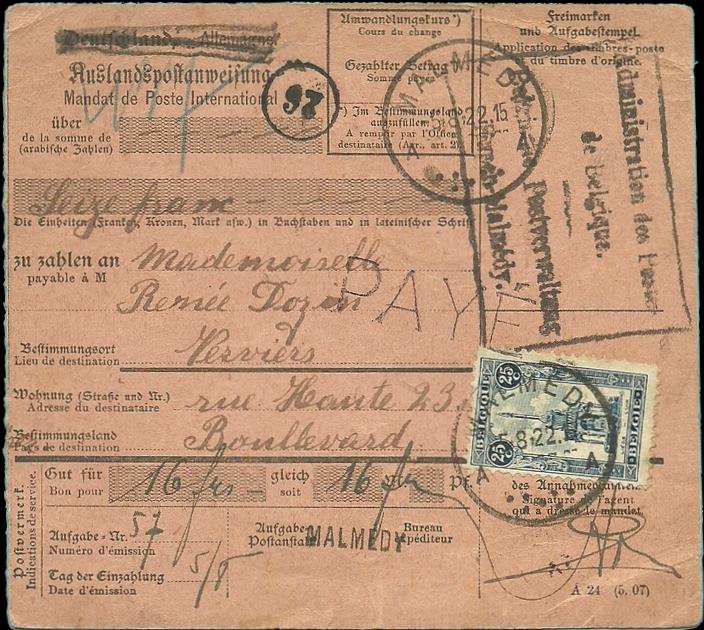 Deutschland, Allemagne.
Auslandspostanweisung
Mandat de Poste International
26
über
de la somme de
(arabische Zahlen)
Umwandlungskurs*)
Cours du change
Gezahlter Betrag
Somme payée
*) Im Bestimmungsland
auszufüllen.
A remplir par l'Office
destinataire (Arr., art. 2).
Freimarken
und Aufgabestempel.
Application des timbres-poste
et du timbre d'origine.
MALMEDY
A A
Administration des Postes
de Belgique.
Postverwaltung
Malmédy.
Seize franc
Die Einheiten (Franken, Kronen, Mark usw.) in Buchstaben und in lateinischer Schrift
zu zahlen an Mademoiselle
payable à M
Renée Dozin
PAYÉ
Bestimmungsort Verviers
Lieu de destination
Wohnung (Straße und Nr.) rue Haute 23
Adresse du destinataire
Bestimmungsland Boullevard
Pays de destination
BELGIQUE 25 25 BELGIË
MALMEDY
8.22.
A A
Postvermerk.
Indications de service.
Gut für 16 frs gleich 16 Pf.
Bon pour soit
des Annahmebeamten.
Signature de l'agent
qui a dressé le mandat.
Aufgabe-Nr. 57
Numéro d'émission
Aufgabe- Bureau
Postanstalt MALMEDY expéditeur
Tag der Einzahlung 5/8
Date d'émission
A 24 (5. 07)